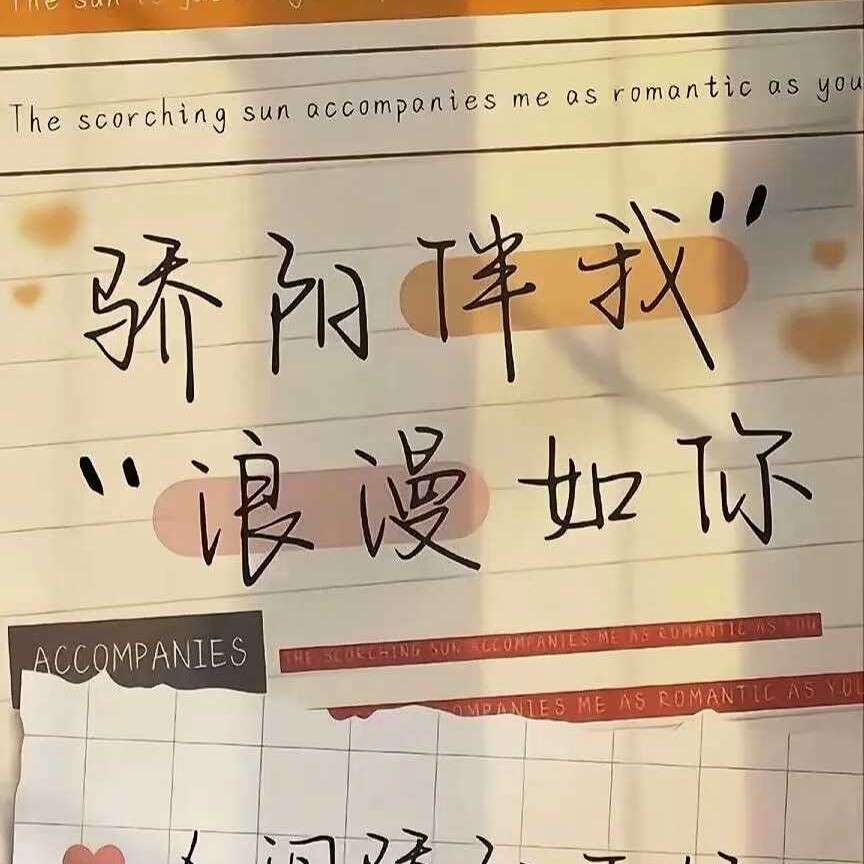 The scorching sun accompanies me as romantic as you
骄阳伴我"
"浪漫如你
ACCOMPANIES
THE SCORCHING SUN ACCOMPANIES ME AS ROMANTIC AS YOU
OMPANIES ME AS ROMANTIC AS YOU
人间骄